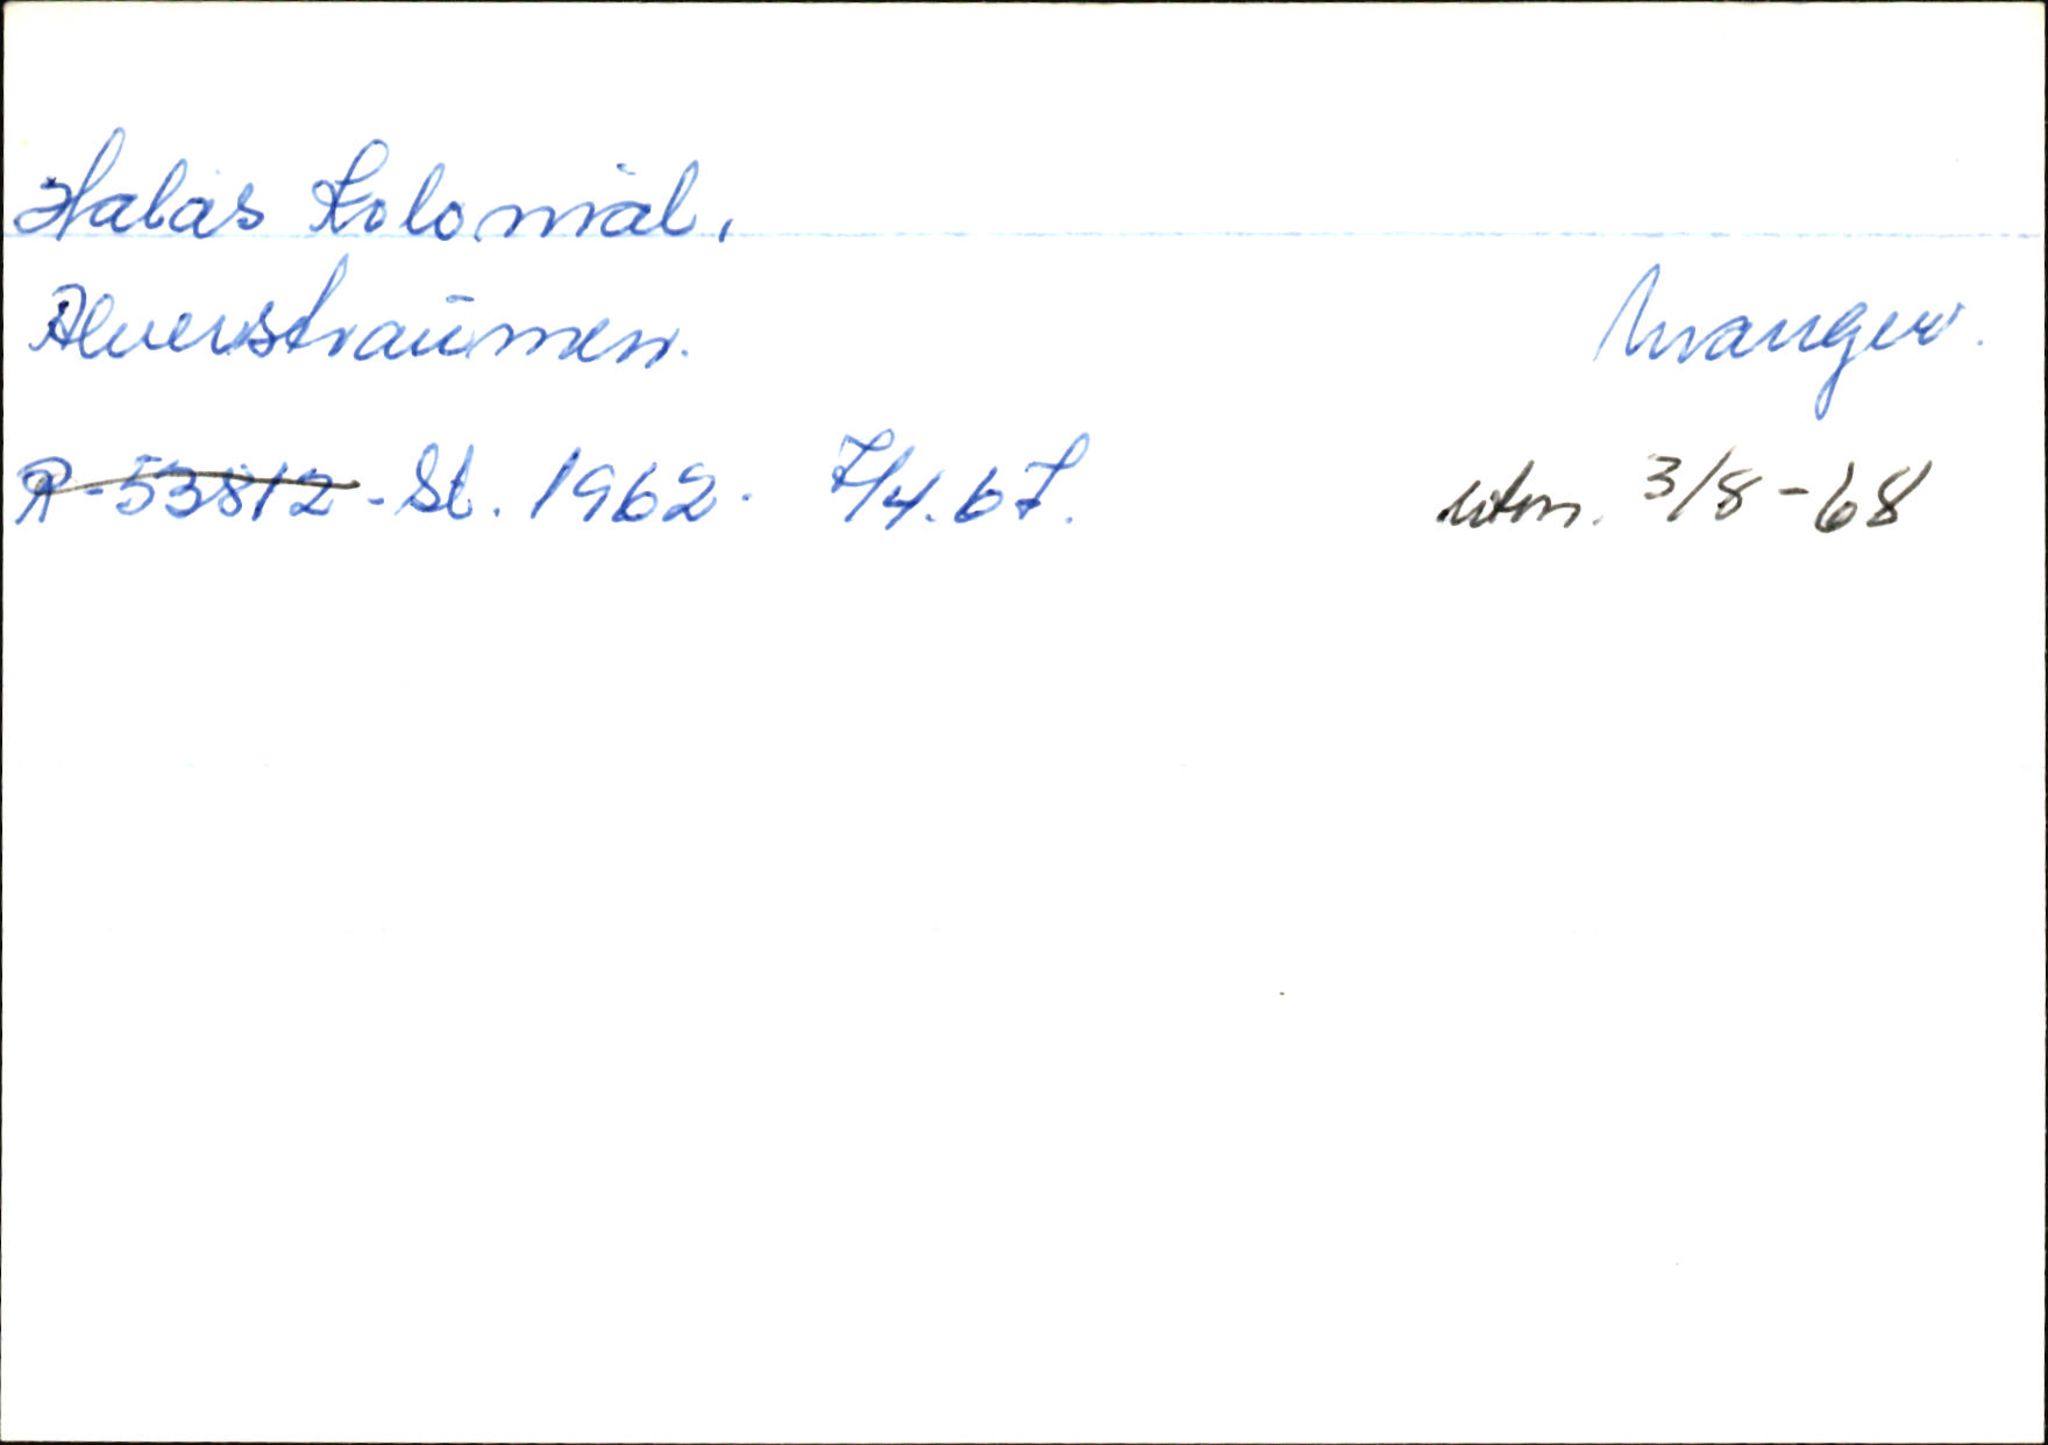 Halås Kolonial,
Alverstraumen. Manger.
R-53812 - St. 1962. 7/4.67. utm. 3/8-68